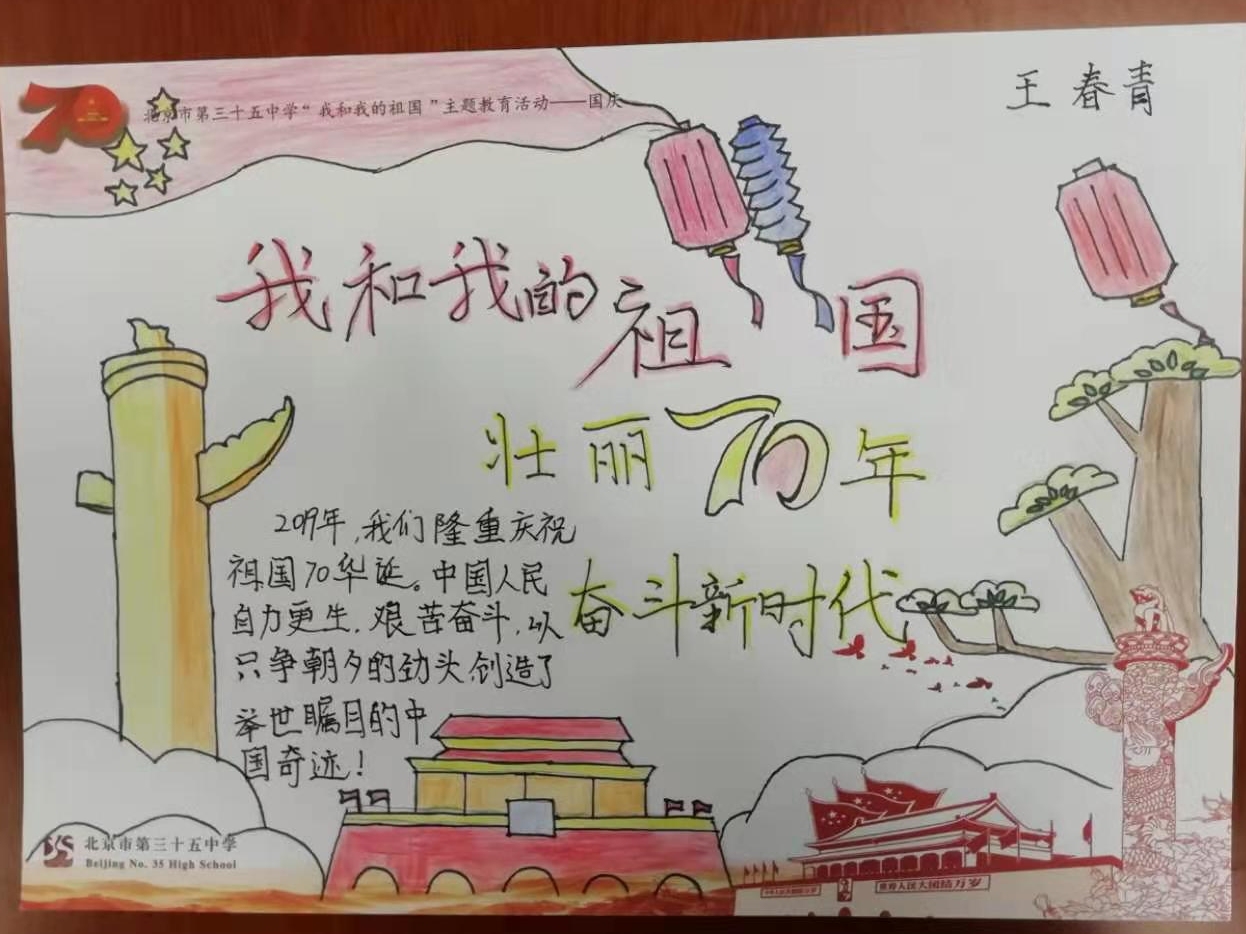 王春青
70
北京市第三十五中学“我和我的祖国”主题教育活动——国庆
我和我的祖国
壮丽70年
奋斗新时代
2019年,我们隆重庆祝
祖国70华诞。中国人民
自力更生,艰苦奋斗,以
只争朝夕的劲头创造了
举世瞩目的中
国奇迹!
北京市第三十五中学
Beijing No. 35 High School
世界人民大团结万岁